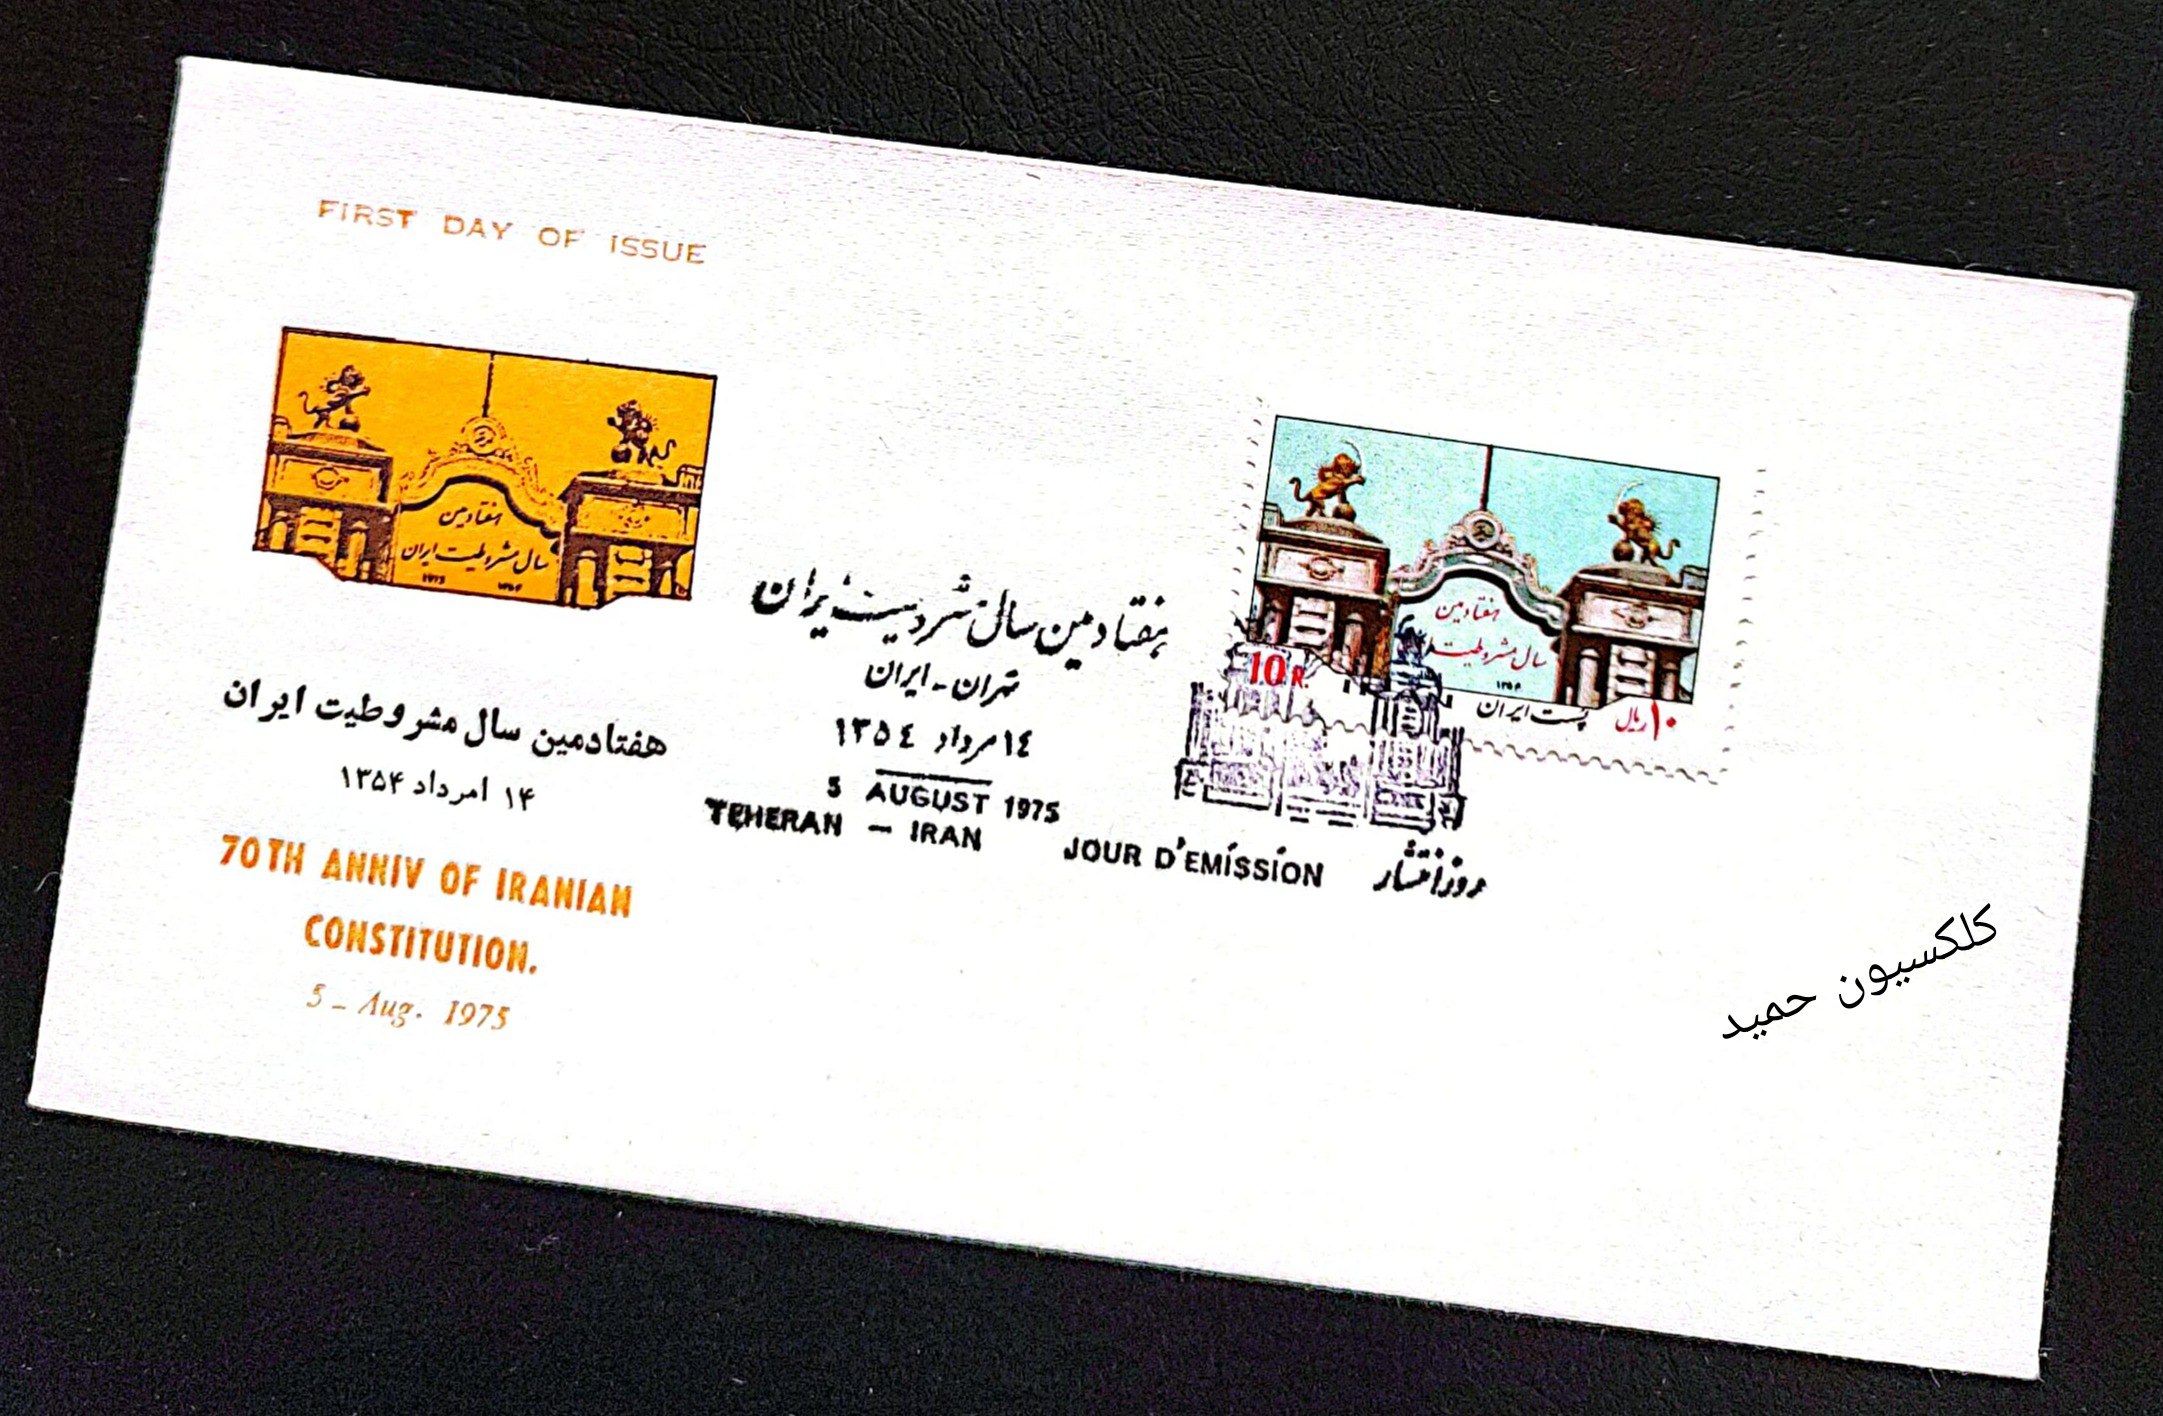 FIRST DAY OF ISSUE
هفتادمین
سال مشروطیت ایران
۱۹۷۵ ۱۳۵۴
هفتادمین سال مشروطیت ایران
۱۴ امرداد ۱۳۵۴
70TH ANNIV OF IRANIAN
CONSTITUTION.
5 - Aug. 1975
هفتادمین سال مشروطیت ایران
تهران - ایران
١٤ مرداد ١٣٥٤
5 AUGUST 1975
TEHERAN - IRAN
JOUR D'EMISSION روز انتشار
هفتادمین
سال مشروطیت
۱۳۵۴
10 R.
پست ایران
۱۰ ریال
کلکسیون حمید